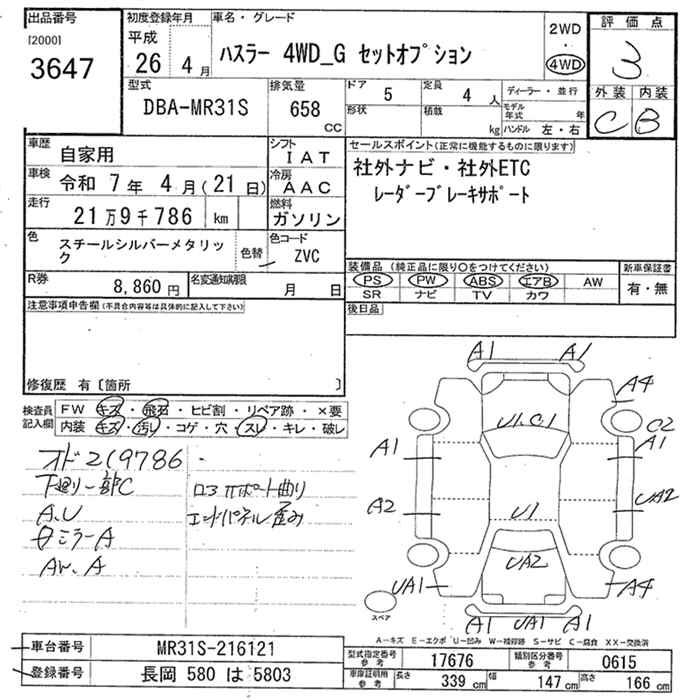 出品番号
[2000]
3647
初度登録年月
平成
26 4月
車名・グレード
ハスラー 4WD_G セットオプション
2WD
・
4WD
評価点
3
外装 内装
C B
型式
DBA-MR31S
排気量
658
CC
ドア
5
定員
4 人
形状
積載
kg
ディーラー・並行
モデル年式 年
ハンドル 左・右
車歴
自家用
シフト
IAT
車検
令和 7年 4月(21日)
冷房
AAC
走行
21万9千786 km
燃料
ガソリン
色
スチールシルバーメタリック
色替
色コード
ZVC
R券
8,860 円
名変通知期限
月 日
セールスポイント(正常に機能するものに限ります)
社外ナビ・社外ETC
レーダーブレーキサポート
装備品(純正品に限り○をつけてください)
PS PW ABS エアB AW
SR ナビ TV カワ
新車保証書
有・無
後日品
注意事項申告欄(不具合内容等は具体的に記入して下さい)
修復歴 有〔箇所 〕
検査員記入欄
FW キズ・飛石・ヒビ割・リペア跡・×要
内装 キズ・汚レ・コゲ・穴・スレ・キレ・破レ
オド219786
下廻り一部C
A.U
ミラーA
AW.A
コアサポート曲り
エンドパネル歪み
A1 A1
A4
U1.C1
C2
A1
A1
A2
UA2
U1
UA2
UA1
A4
A1 UA1 A1
スペア
A-キズ E-エクボ U-凹み W-補修跡 S-サビ C-腐食 XX-交換済
車台番号
MR31S-216121
登録番号
長岡 580 は 5803
型式指定番号
参考
17676
類別区分番号
参考
0615
車庫証明用
参考
長さ
339 cm
幅
147 cm
高さ
166 cm